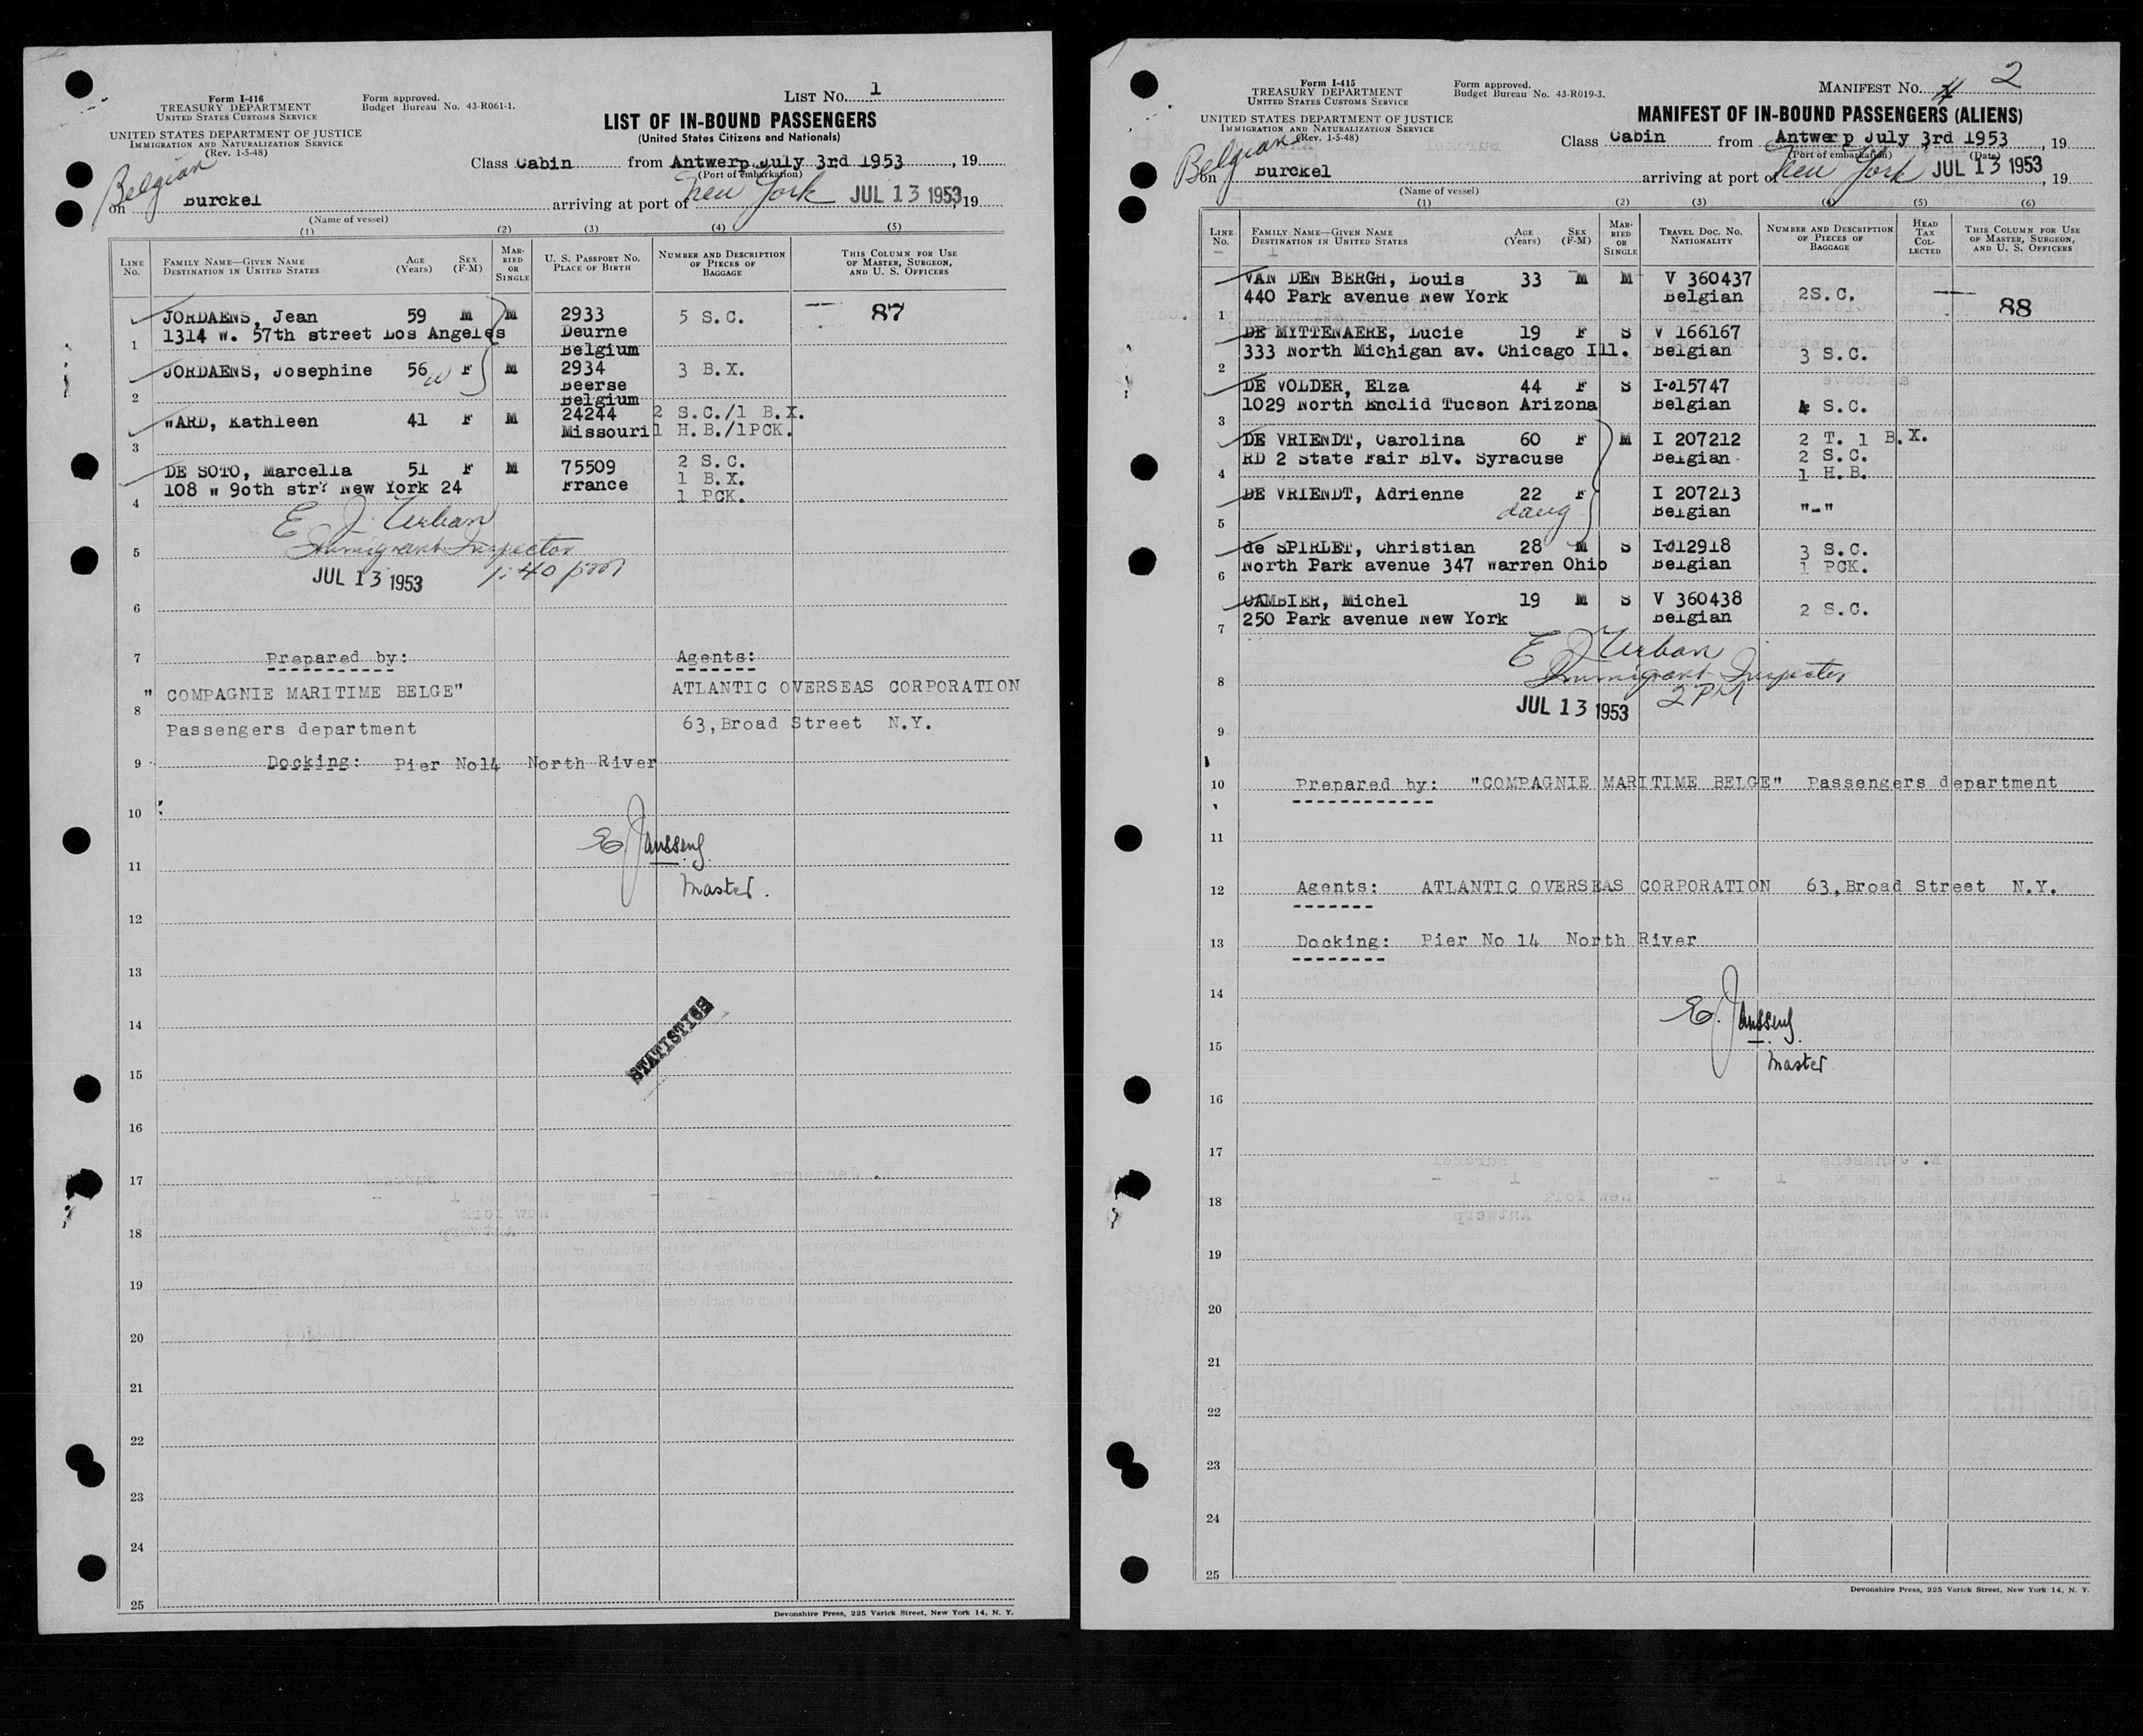 Form I-416
TREASURY DEPARTMENT
UNITED STATES CUSTOMS SERVICE
UNITED STATES DEPARTMENT OF JUSTICE
IMMIGRATION AND NATURALIZATION SERVICE
(Rev. 1-5-48)
Form approved.
Budget Bureau No. 43-R061-1.
LIST NO. 1
LIST OF IN-BOUND PASSENGERS
(United States Citizens and Nationals)
Class Cabin from Antwerp July 3rd 1953, 19
(Port of embarkation)
Belgian
on Burckel arriving at port of New York JUL 13 1953, 19
(Name of vessel)
(1) (2) (3) (4) (5)
LINE NO.
FAMILY NAME—GIVEN NAME
DESTINATION IN UNITED STATES
AGE (Years)
SEX (F-M)
MARRIED OR SINGLE
U. S. PASSPORT NO.
PLACE OF BIRTH
NUMBER AND DESCRIPTION OF PIECES OF BAGGAGE
THIS COLUMN FOR USE OF MASTER, SURGEON, AND U. S. OFFICERS
JORDAENS, Jean 59 M M 2933 5 S.C. — 87
1 1314 W. 57th street Los Angeles Deurne
Belgium
JORDAENS, Josephine 56 w F M 2934 3 B.X.
2 Beerse
Belgium
WARD, Kathleen 41 F M 24244 2 S.C./1 B.X.
3 Missouri 1 H.B./1PCK.
DE SOTO, Marcella 51 F M 75509 2 S.C.
108 W 90th str? New York 24 France 1 B.X.
4 1 PCK.
E J. Urban
5 Immigrant Inspector
JUL 13 1953 1:40 pm
6
7 Prepared by: Agents:
" COMPAGNIE MARITIME BELGE" ATLANTIC OVERSEAS CORPORATION
8
Passengers department 63,Broad Street N.Y.
9 Docking: Pier No14 North River
10
E Janssens
11
Master.
12
13
14
STATISTICS
15
16
17
18
19
20
21
22
23
24
25
Devonshire Press, 225 Varick Street, New York 14, N. Y.
Form I-415
TREASURY DEPARTMENT
UNITED STATES CUSTOMS SERVICE
UNITED STATES DEPARTMENT OF JUSTICE
IMMIGRATION AND NATURALIZATION SERVICE
(Rev. 1-5-48)
Form approved.
Budget Bureau No. 43-R019-3.
MANIFEST NO. 2
MANIFEST OF IN-BOUND PASSENGERS (ALIENS)
Class Cabin from Antwerp July 3rd 1953, 19
(Port of embarkation) (Date)
Belgian
on Burckel arriving at port of New York JUL 13 1953, 19
(Name of vessel)
(1) (2) (3) (4) (5) (6)
LINE NO.
FAMILY NAME—GIVEN NAME
DESTINATION IN UNITED STATES
AGE (Years)
SEX (F-M)
MARRIED OR SINGLE
TRAVEL DOC. NO.
NATIONALITY
NUMBER AND DESCRIPTION OF PIECES OF BAGGAGE
HEAD TAX COLLECTED
THIS COLUMN FOR USE OF MASTER, SURGEON, AND U. S. OFFICERS
VAN DEN BERGH, Louis 33 M M V 360437 2S.C. — 88
1 440 Park avenue New York Belgian
DE MYTTENAERE, Lucie 19 F S V 166167
2 333 North Michigan av. Chicago Ill. Belgian 3 S.C.
DE VOLDER, Elza 44 F S I-015747
3 1029 North Enclid Tucson Arizona Belgian 4 S.C.
DE VRIENDT, Carolina 60 F M I 207212 2 T. 1 B.X.
RD 2 State Fair Blv. Syracuse Belgian 2 S.C.
4 1 H.B.
DE VRIENDT, Adrienne 22 F I 207213
5 daug Belgian "-"
de SPIRLET, Christian 28 M S I-012918 3 S.C.
6 North Park avenue 347 Warren Ohio Belgian 1 PCK.
CAMBIER, Michel 19 M S V 360438 2 S.C.
7 250 Park avenue New York Belgian
E J Urban
8 Immigrant Inspector
JUL 13 1953 2 PM
9
10 Prepared by: "COMPAGNIE MARITIME BELGE" Passengers department
11
12 Agents: ATLANTIC OVERSEAS CORPORATION 63,Broad Street N.Y.
13 Docking: Pier No 14 North River
14
E. Janssens
15
Master
16
17
18
19
20
21
22
23
24
25
Devonshire Press, 225 Varick Street, New York 14, N. Y.